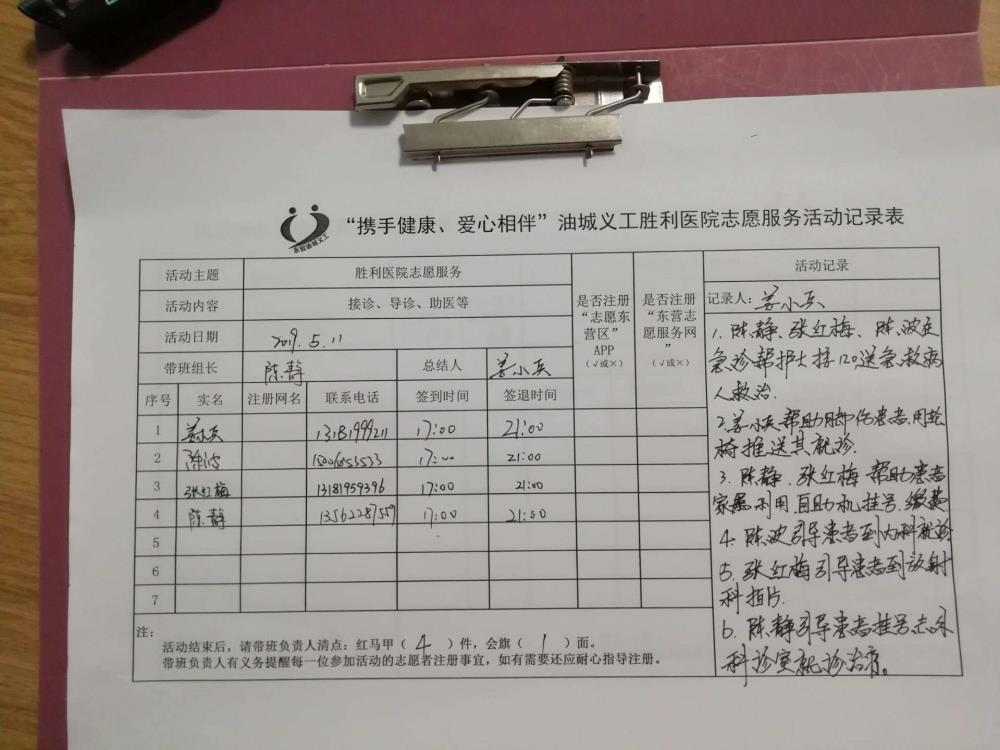 “携手健康、爱心相伴”油城义工胜利医院志愿服务活动记录表
东营油城义工
活动主题 胜利医院志愿服务
活动内容 接诊、导诊、助医等
活动日期 2019.5.11
带班组长 陈静 总结人 姜小兵
是否注册“志愿东营区”APP（√或×）
是否注册“东营志愿服务网”（√或×）
序号 实名 注册网名 联系电话 签到时间 签退时间
1 姜小兵 13181999211 17:00 21:00
2 陈波 17:00 21:00
3 张红梅 13181959396 17:00 21:00
4 陈静 13562287559 17:00 21:00
5
6
7
注：
活动结束后，请带班负责人清点：红马甲（4）件，会旗（1）面。
带班负责人有义务提醒每一位参加活动的志愿者注册事宜，如有需要还应耐心指导注册。
活动记录
记录人：姜小兵
1. 陈静、张红梅、陈波在
急诊帮护士接120送急救病
人救治.
2.姜小兵帮助脚伤患者用轮
椅推送其就诊.
3. 陈静.张红梅帮助患者
家属利用自助机挂号.缴费
4. 陈波引导患者到内科就诊
5. 张红梅引导患者到放射
科拍片.
6. 陈静引导患者挂号.
科诊室就诊治疗。